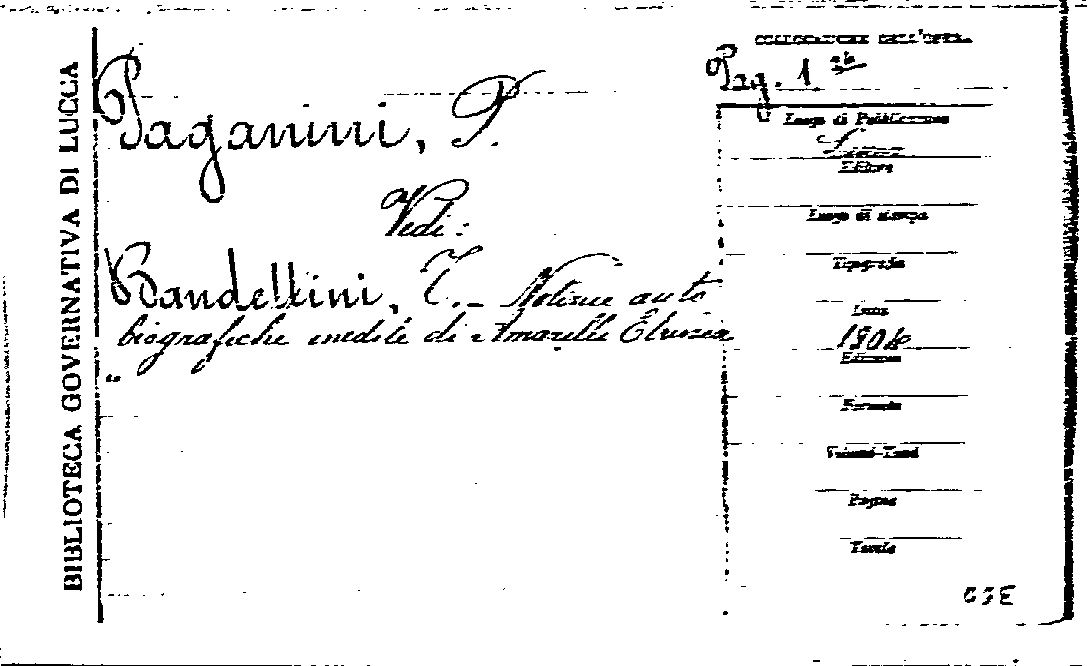 BIBLIOTECA GOVERNATIVA DI LUCCA
Paganini, P.
Vedi:
Bandettini, T. - Notizie auto
biografiche inedite di Amarilli Etrusca
COLLOCAZIONE DELL'OPERA
Pag. 1
Luogo di Pubblicazione
Lucca
Editore
Luogo di stampa
Tipografia
Anno
Edizione
Formato
Volumi-Tomi
Pagine
Tavole